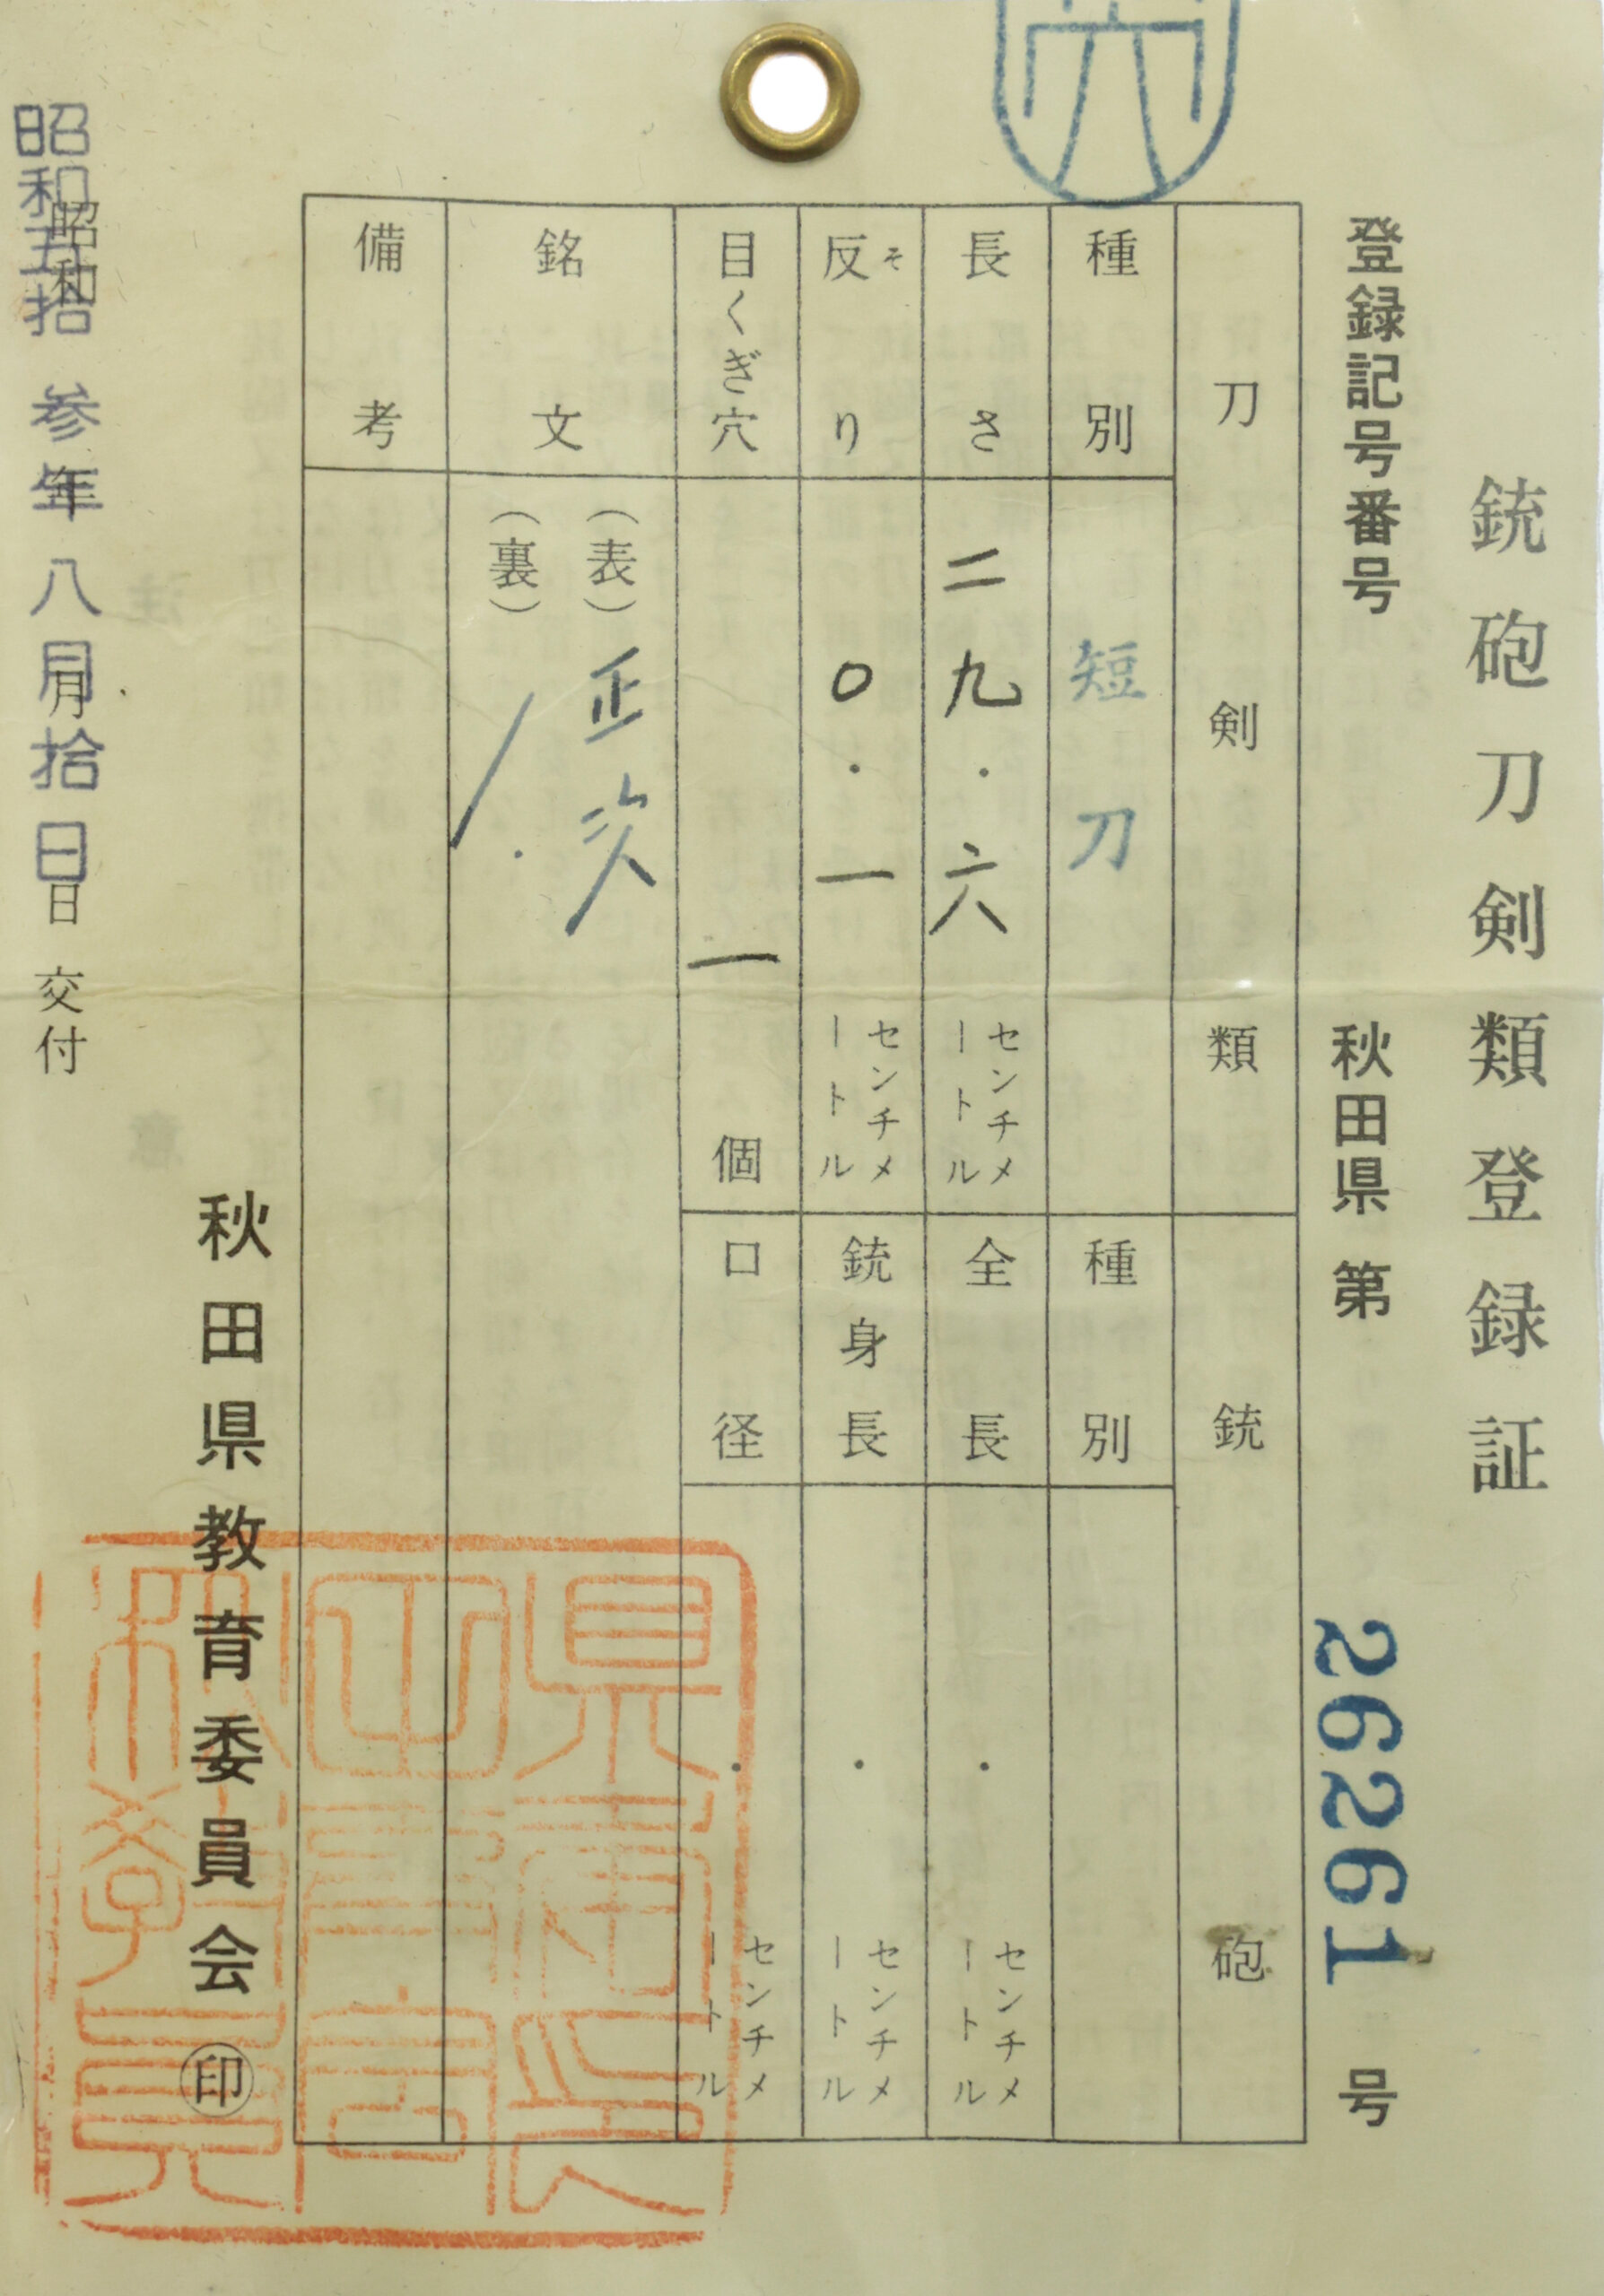 銃砲刀剣類登録証
登録記号番号 秋田県 第 26261 号
刀剣類
種別 短刀
長さ 二九.六 センチメートル
反り そ 〇.一 センチメートル
目くぎ穴 一 個
銘文 (表) 正次
(裏)
備考
銃砲
種別
全長 . センチメートル
銃身長 . センチメートル
口径 . センチメートル
秋田県教育委員会 印
昭和 年 月 日 交付
昭和五拾参年八月拾日